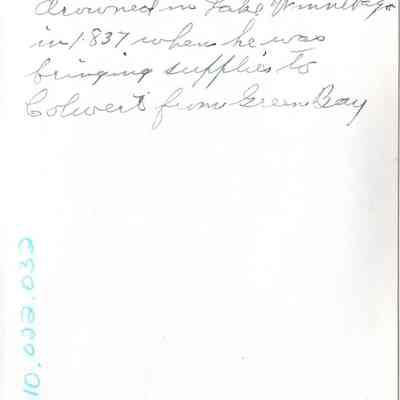 drowned in Lake Winnebago
in 1837 when he was
bringing supplies to
from Green Bay
10.022.032